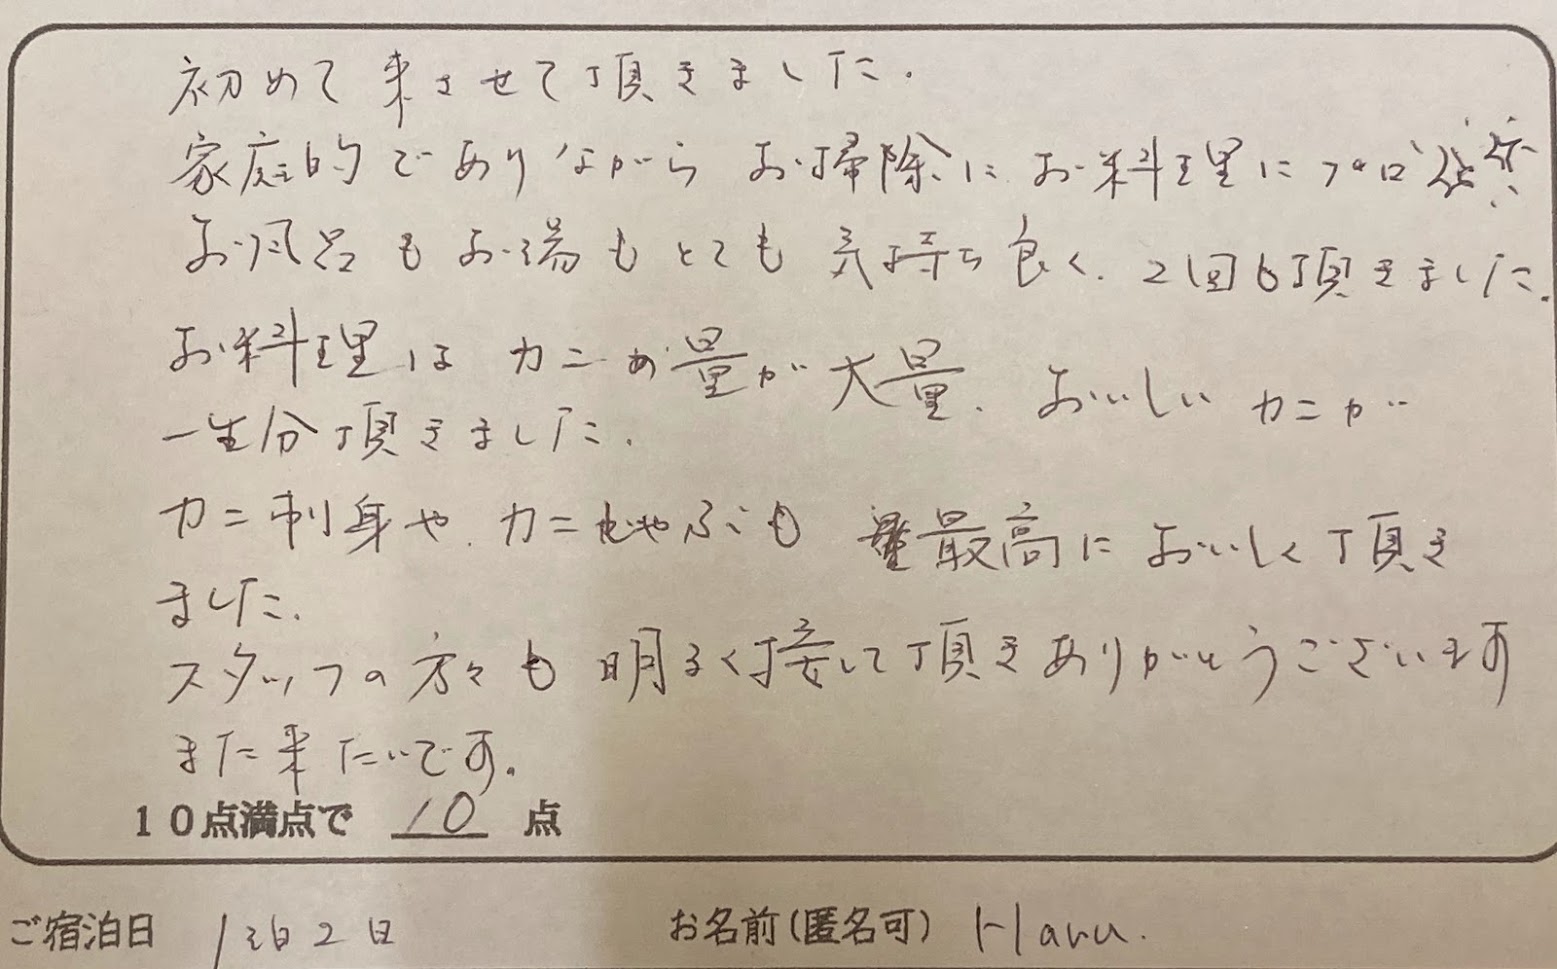 初めて来させて頂きました.
家庭的でありながらお掃除にお料理にプロ
お風呂もお湯もとても気持ち良く.2回も頂きました.
お料理はカニの量が大量、おいしいカニが
一生分頂きました.
カニ刺身や.カニしゃぶも 最高においしく頂き
ました.
スタッフの方々も明るく接して頂きありがとうございます
また来たいです。
10点満点で 10 点
ご宿泊日 1泊2日 お名前(匿名可) Haru.